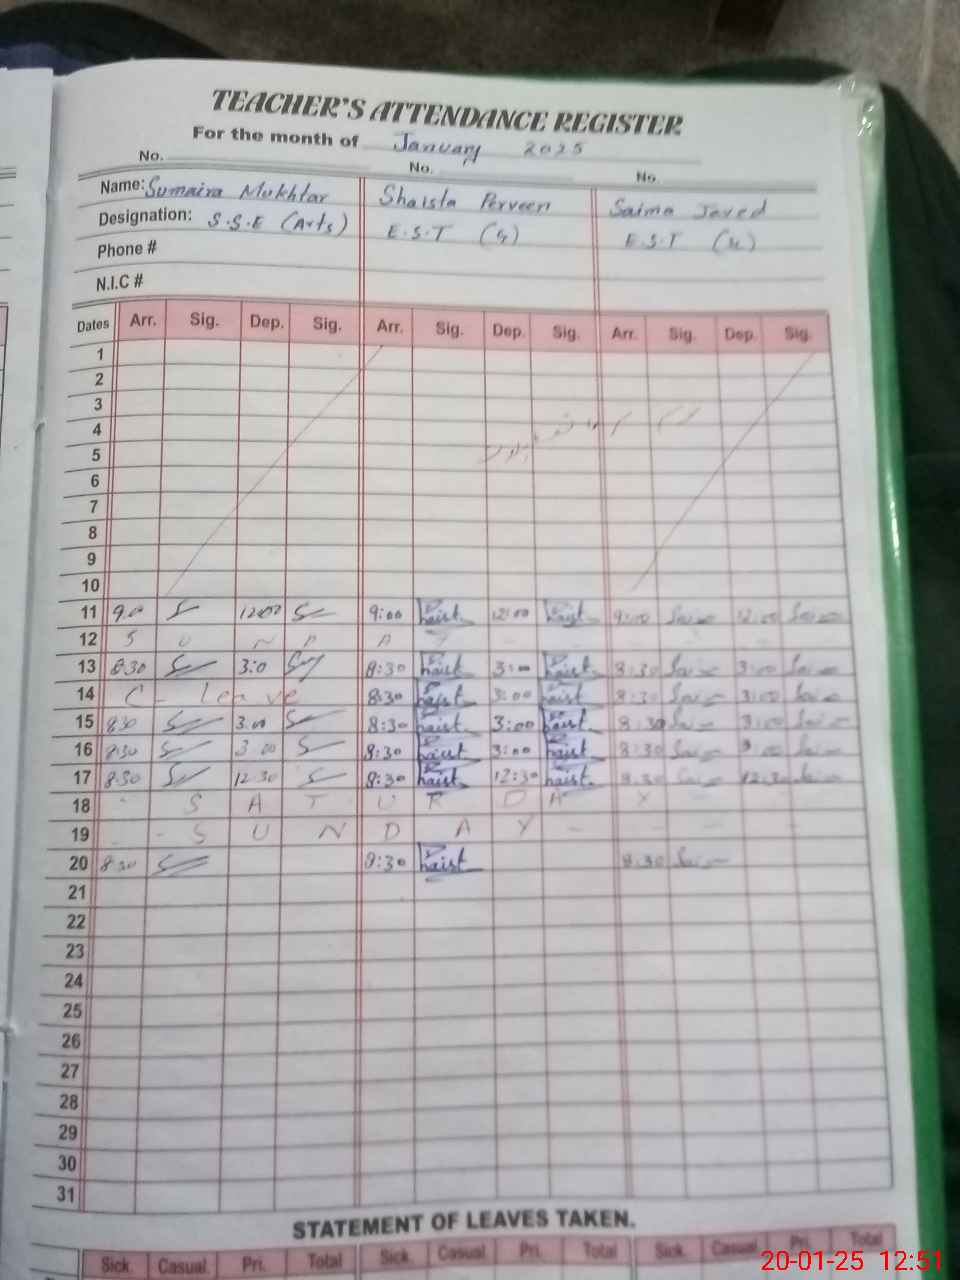 TEACHER'S ATTENDANCE REGISTER
For the month of January 2025
No. No. No.
Name: Sumaira Mukhtar Shaista Perveen Saima Javed
Designation: S.S.E (Arts) E.S.T (G) E.S.T
Phone #
N.I.C #
Dates Arr. Sig. Dep. Sig. Arr. Sig. Dep. Sig. Arr. Sig. Dep. Sig.
1
2
3
4
5
6
7
8
9
10
11 9.0 12:00 9:00 haist 12:00 haist 9:00 12:00
12 S U N D A Y
13 8.30 3:0 8:30 haist 3:00 haist 8:30 3:00
14 C- leave 8:30 haist 3:00 haist 8:30 3:00
15 8:30 3.00 8:30 haist 3:00 haist 8:30 3:00
16 8:30 3.00 8:30 haist 3:00 haist 8:30 3:00
17 8:30 12:30 8:30 haist 12:30 haist 8:30 12:30
18 S A T U R D A Y
19 S U N D A Y
20 8:30 8:30 haist 8:30
21
22
23
24
25
26
27
28
29
30
31
STATEMENT OF LEAVES TAKEN.
Sick. Casual Pri. Total Sick. Casual Pri. Total Sick. Casual Pri. Total
20-01-25 12:51